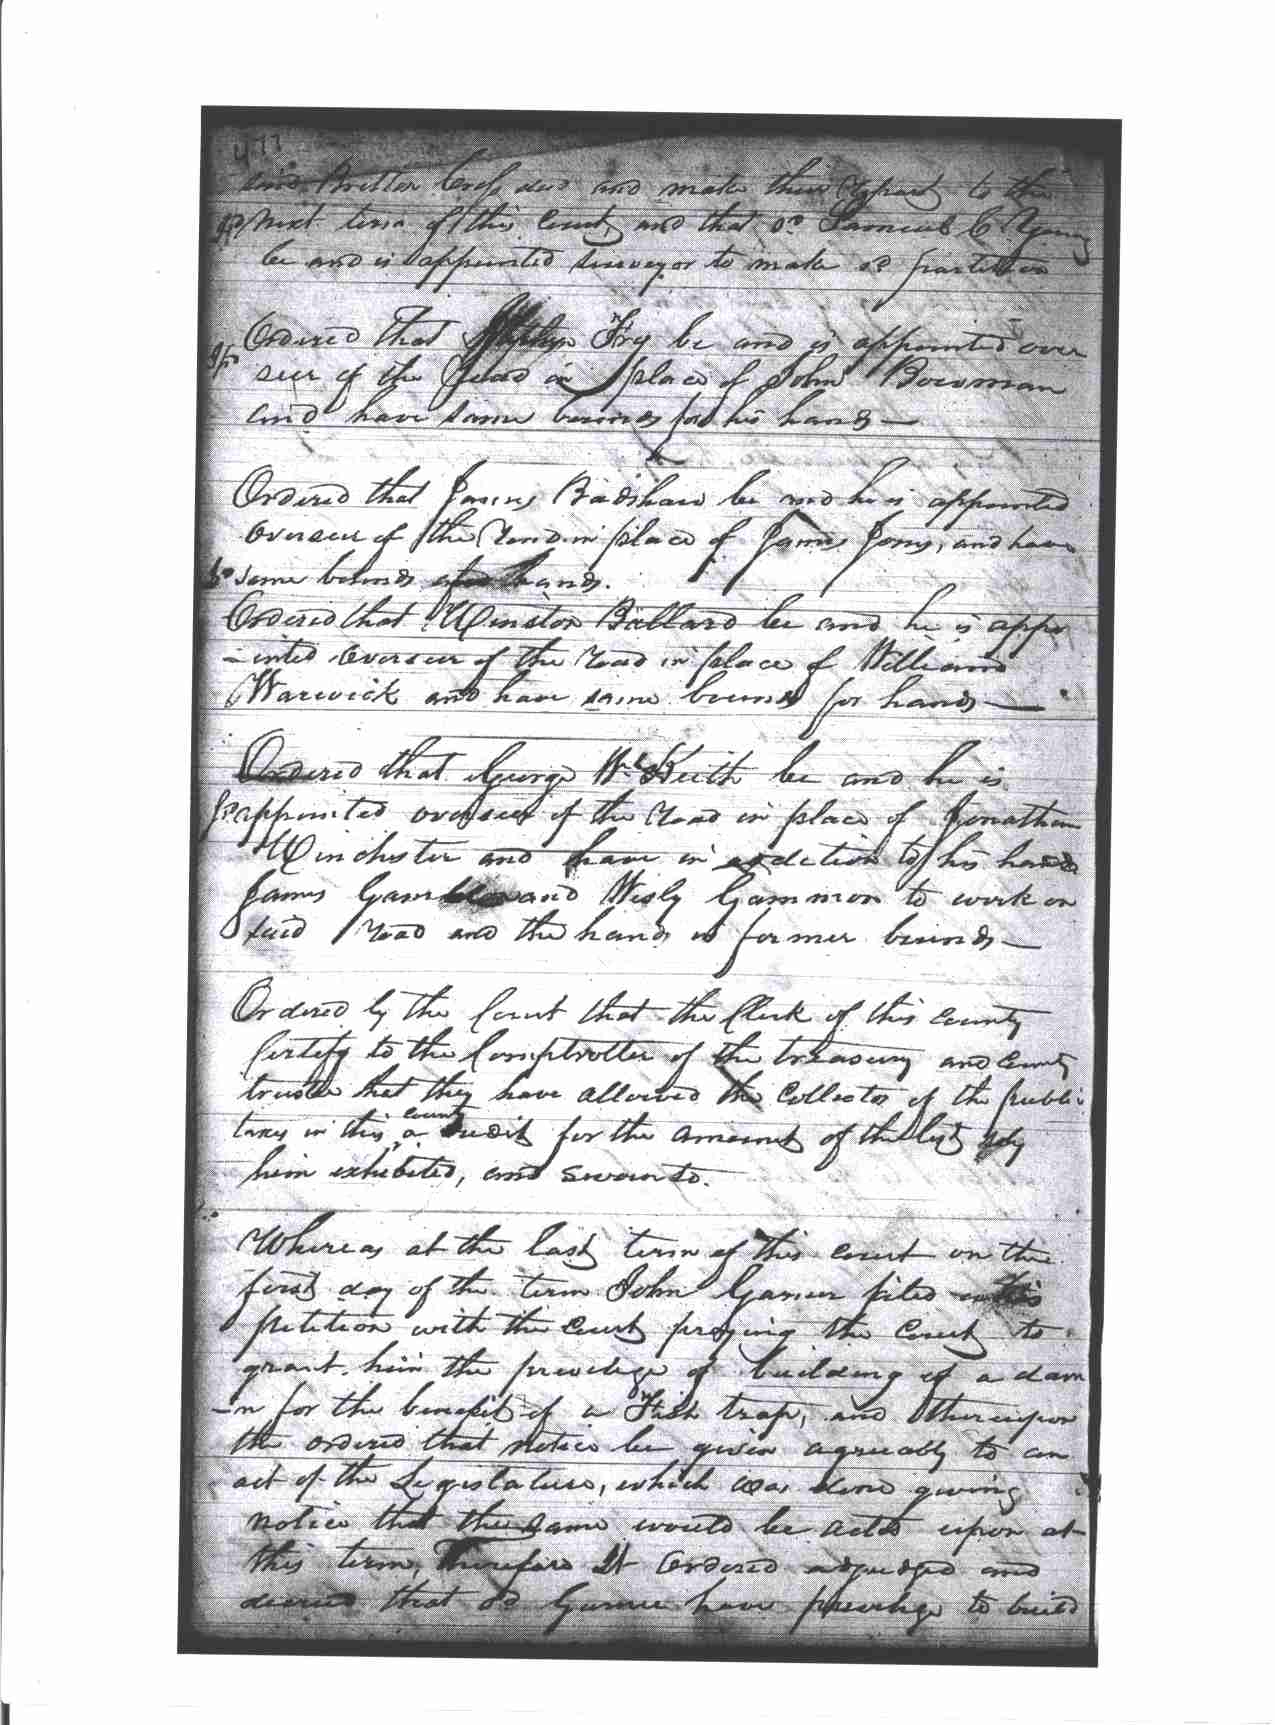 477
and Britton Cross decd and make their Report to the
next term of this Court, and that sd Samuel C Young
be and is appointed surveyor to make sd partition
Ordered that Stephen Fry be and is appointed over
seer of the Road in place of John Bowman
and have same bounds for his hands —
Ordered that James Bradshaw be and he is appointed
overseer of the Road in place of James Jones, and have
same bounds for hands.
Ordered that Winston Ballard be and he is appo
-inted Overseer of the road in place of William
Warwick and have same bounds for hands —
Ordered that George W. Keith be and he is
appointed overseer of the road in place of Jonathan
Winchester and have in addition to his hands
James Gamble and Wesly Gammon to work on
said road and the hands in former bounds —
Ordered by the Court that the Clerk of this county
Certify to the Comptroller of the treasury and County
trustee that they have allowed the Collector of the public
taxes in this county a credit for the amount of the list by
him exhibited, and sworn to.
Whereas at the last term of this court on the
first day of the term John Garner filed his
petition with the Court praying the Court to
grant him the priviledge of building of a dam
-n for the benefit of a Fish trap, and thereupon
the ordered that notice be given agreeably to an
act of the Legislature, which was done giving
notice that the same would be acted upon at
this term, Therefore It Ordered adjudged and
decreed that sd Garner have priviledge to build